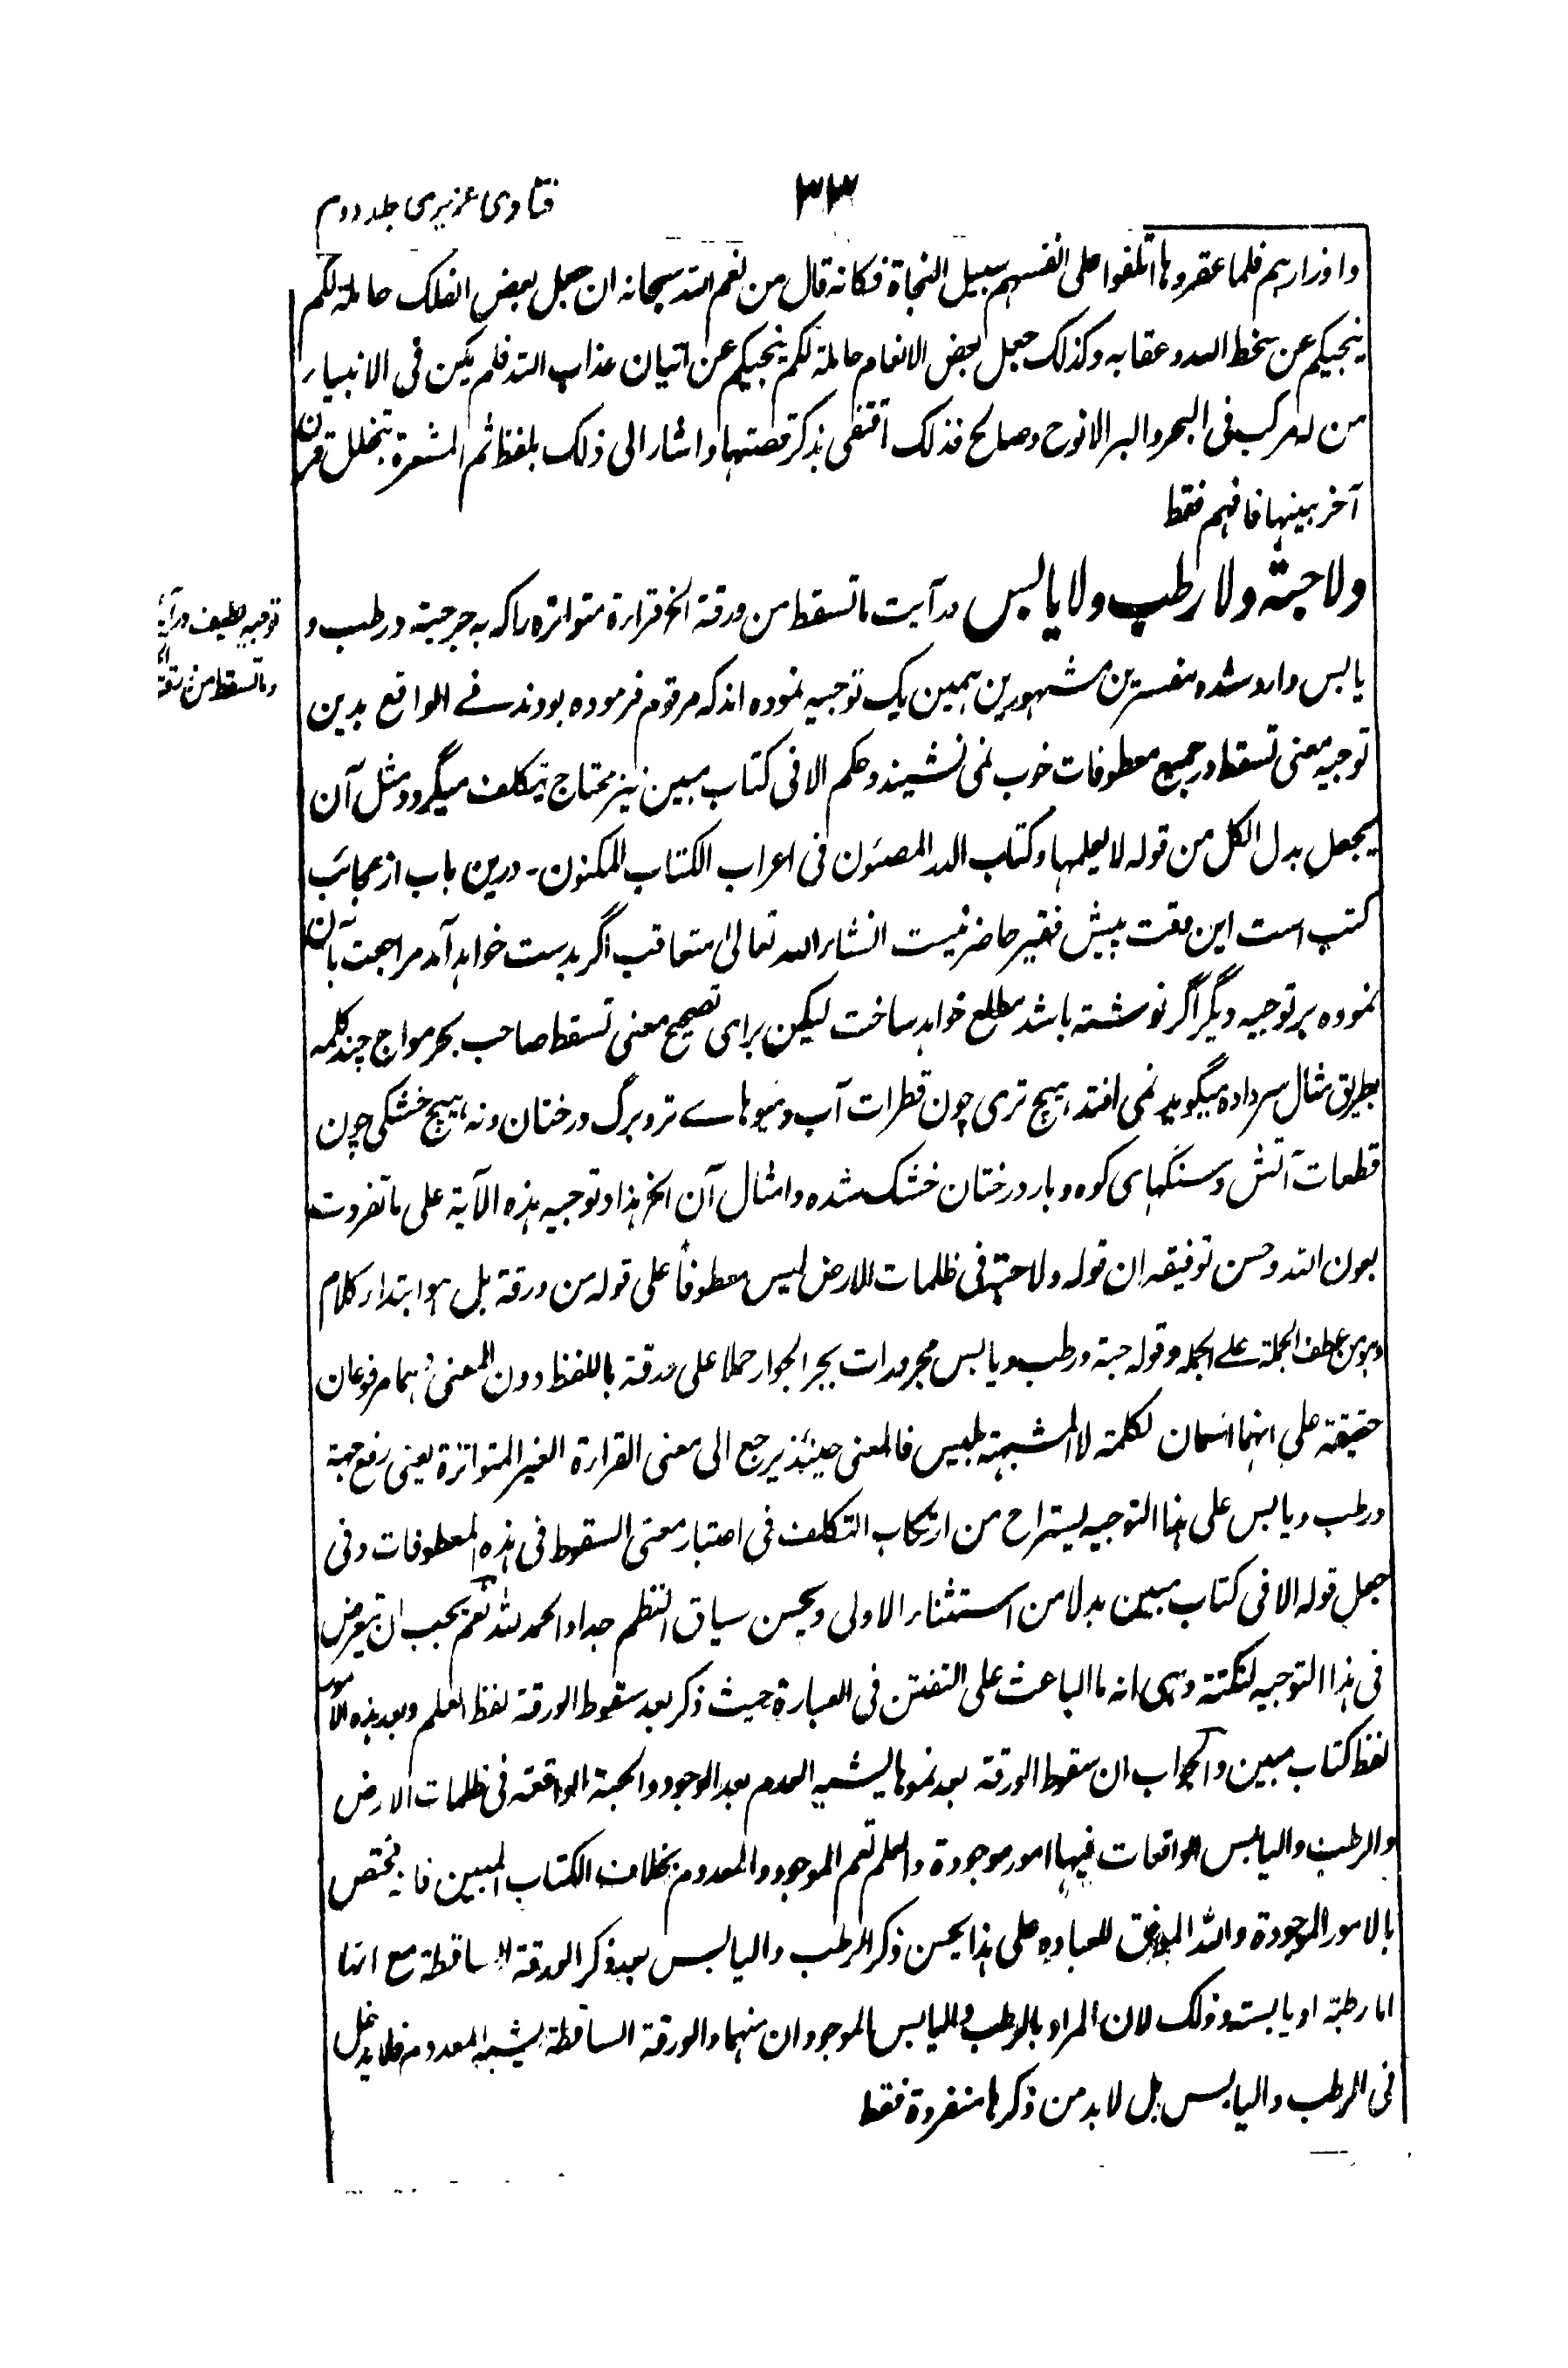 ۳۳
فتاوی عزیزی جلد دوم
واوزارہم فلما عقروہا اتلفوا علی انفسہم سبیل النجاۃ فکانہ قال من نعم اللہ سبحانہ ان جعل بعض الفلک حاملۃ لکم
ینجیکم عن سخط اللہ وعقابہ وکذلک جعل بعض الانعام حاملۃ لکم ینجیکم عن اتیان عذاب اللہ فلم یکن فی الانبیاء
من لہ مرکب فی البحر والبر الا نوح وصالح فذلک اقتفی بذکر قصتہا واشار الی ذلک بلفظ ثم المشعرۃ بتخلل قرن
آخر بینہا فافہم فقط
ولا حبۃ ولا رطب ولا یابس در آیت ما تسقط من ورقۃ الخ قراءۃ متواترہ را کہ بہ جر حبۃ ورطب و
یابس وارد شدہ مفسرین مشہورین ہمین یک توجیہ نمودہ اند کہ مرقوم فرمودہ بودند فے الواقع بدین
توجیہ معنی تسقط در جمیع معطوفات خوب نمی نشیند وحکم الا فی کتاب مبین نیز محتاج بتکلف میگردد مثل آن
یجعل بدل الکل من قولہ لا یعلمہا وکتاب الدر المصئون فی اعراب الکتاب المکنون۔ درین باب از عجائب
کتب است این وقت پیش فقیر حاضر نیست انشاء اللہ تعالیٰ متعاقب اگر بدست خواہد آمد مراجعت بآن
نمودہ بر توجیہ دیگر اگر نوشتہ باشد مطلع خواہد ساخت لیکن برای تصحیح معنی تسقط صاحب بحر مواج چند کلمہ
بطریق مثال سردادہ میگوید نمی افتد ہیچ تری چون قطرات آب ومیوہاے تر وبرگ درختان ونہ ہیچ خشکی چون
قطعات آتش وسنگہای کوہ وبار درختان خشک شدہ وامثال آن الخ ہذا وتوجیہ ہذہ الآیۃ علی ما تفردت
بعون اللہ وحسن توفیقہ ان قولہ ولا حبۃ فی ظلمات الارض لیس معطوفاً علی قولہ من ورقۃ بل ہو ابتداء کلام
وہو من عطف الجملۃ علے الجملہ وقولہ حبۃ ورطب ویابس مجرورات بجر الجوار حملا علی ورقۃ باللفظ دون المعنیٰ ہما مرفوعان
حقیقۃ علی انہما اسمان لکلمۃ لا المشبہۃ بلیس فالمعنی حینئذ یرجع الی معنی القراءۃ الغیر المتواترۃ یعنی رفع حبۃ
ورطب ویابس علی ہذا التوجیہ یستراح من ارتکاب التکلف فی اعتبار معنی السقوط فی ہذہ المعطوفات وفی
جعل قولہ الا فی کتاب مبین بدلا من استثناء الاولی ویحسن سیاق النظم جدا والحمد للہ نعم یجب ان یتعرض
فی ہذا التوجیہ لنکتۃ وہی انہ ما الباعث علی التفنن فی العبارۃ حیث ذکر بعد سقوط الورقۃ لفظ العلم وبعد ہذہ الامور
لفظ کتاب مبین والجواب ان سقوط الورقۃ بعد نموہا یشبہ العدم بعد الوجود والحبۃ الواقعۃ فی ظلمات الارض
والرطب والیابس الواقعات فیہا امور موجودۃ والعلم تعم الموجود والمعدوم بخلاف الکتاب المبین فانہ یختص
بالامور الموجودۃ واللہ الموفق للعبادہ علی ہذا یحسن ذکر الرطب والیابس بعد ذکر الورقۃ الساقطۃ مع انہا
اما رطبۃ او یابسۃ وذلک لان المراد بالرطب والیابس الموجودان منہما والورقۃ الساقطۃ یشبہ المعدومۃ فلا یدخل
فی الرطب والیابس بل لا بد من ذکرہا منفردۃ فقط
توجیہ لطیف در آیۃ
وما تسقط من ورقۃ